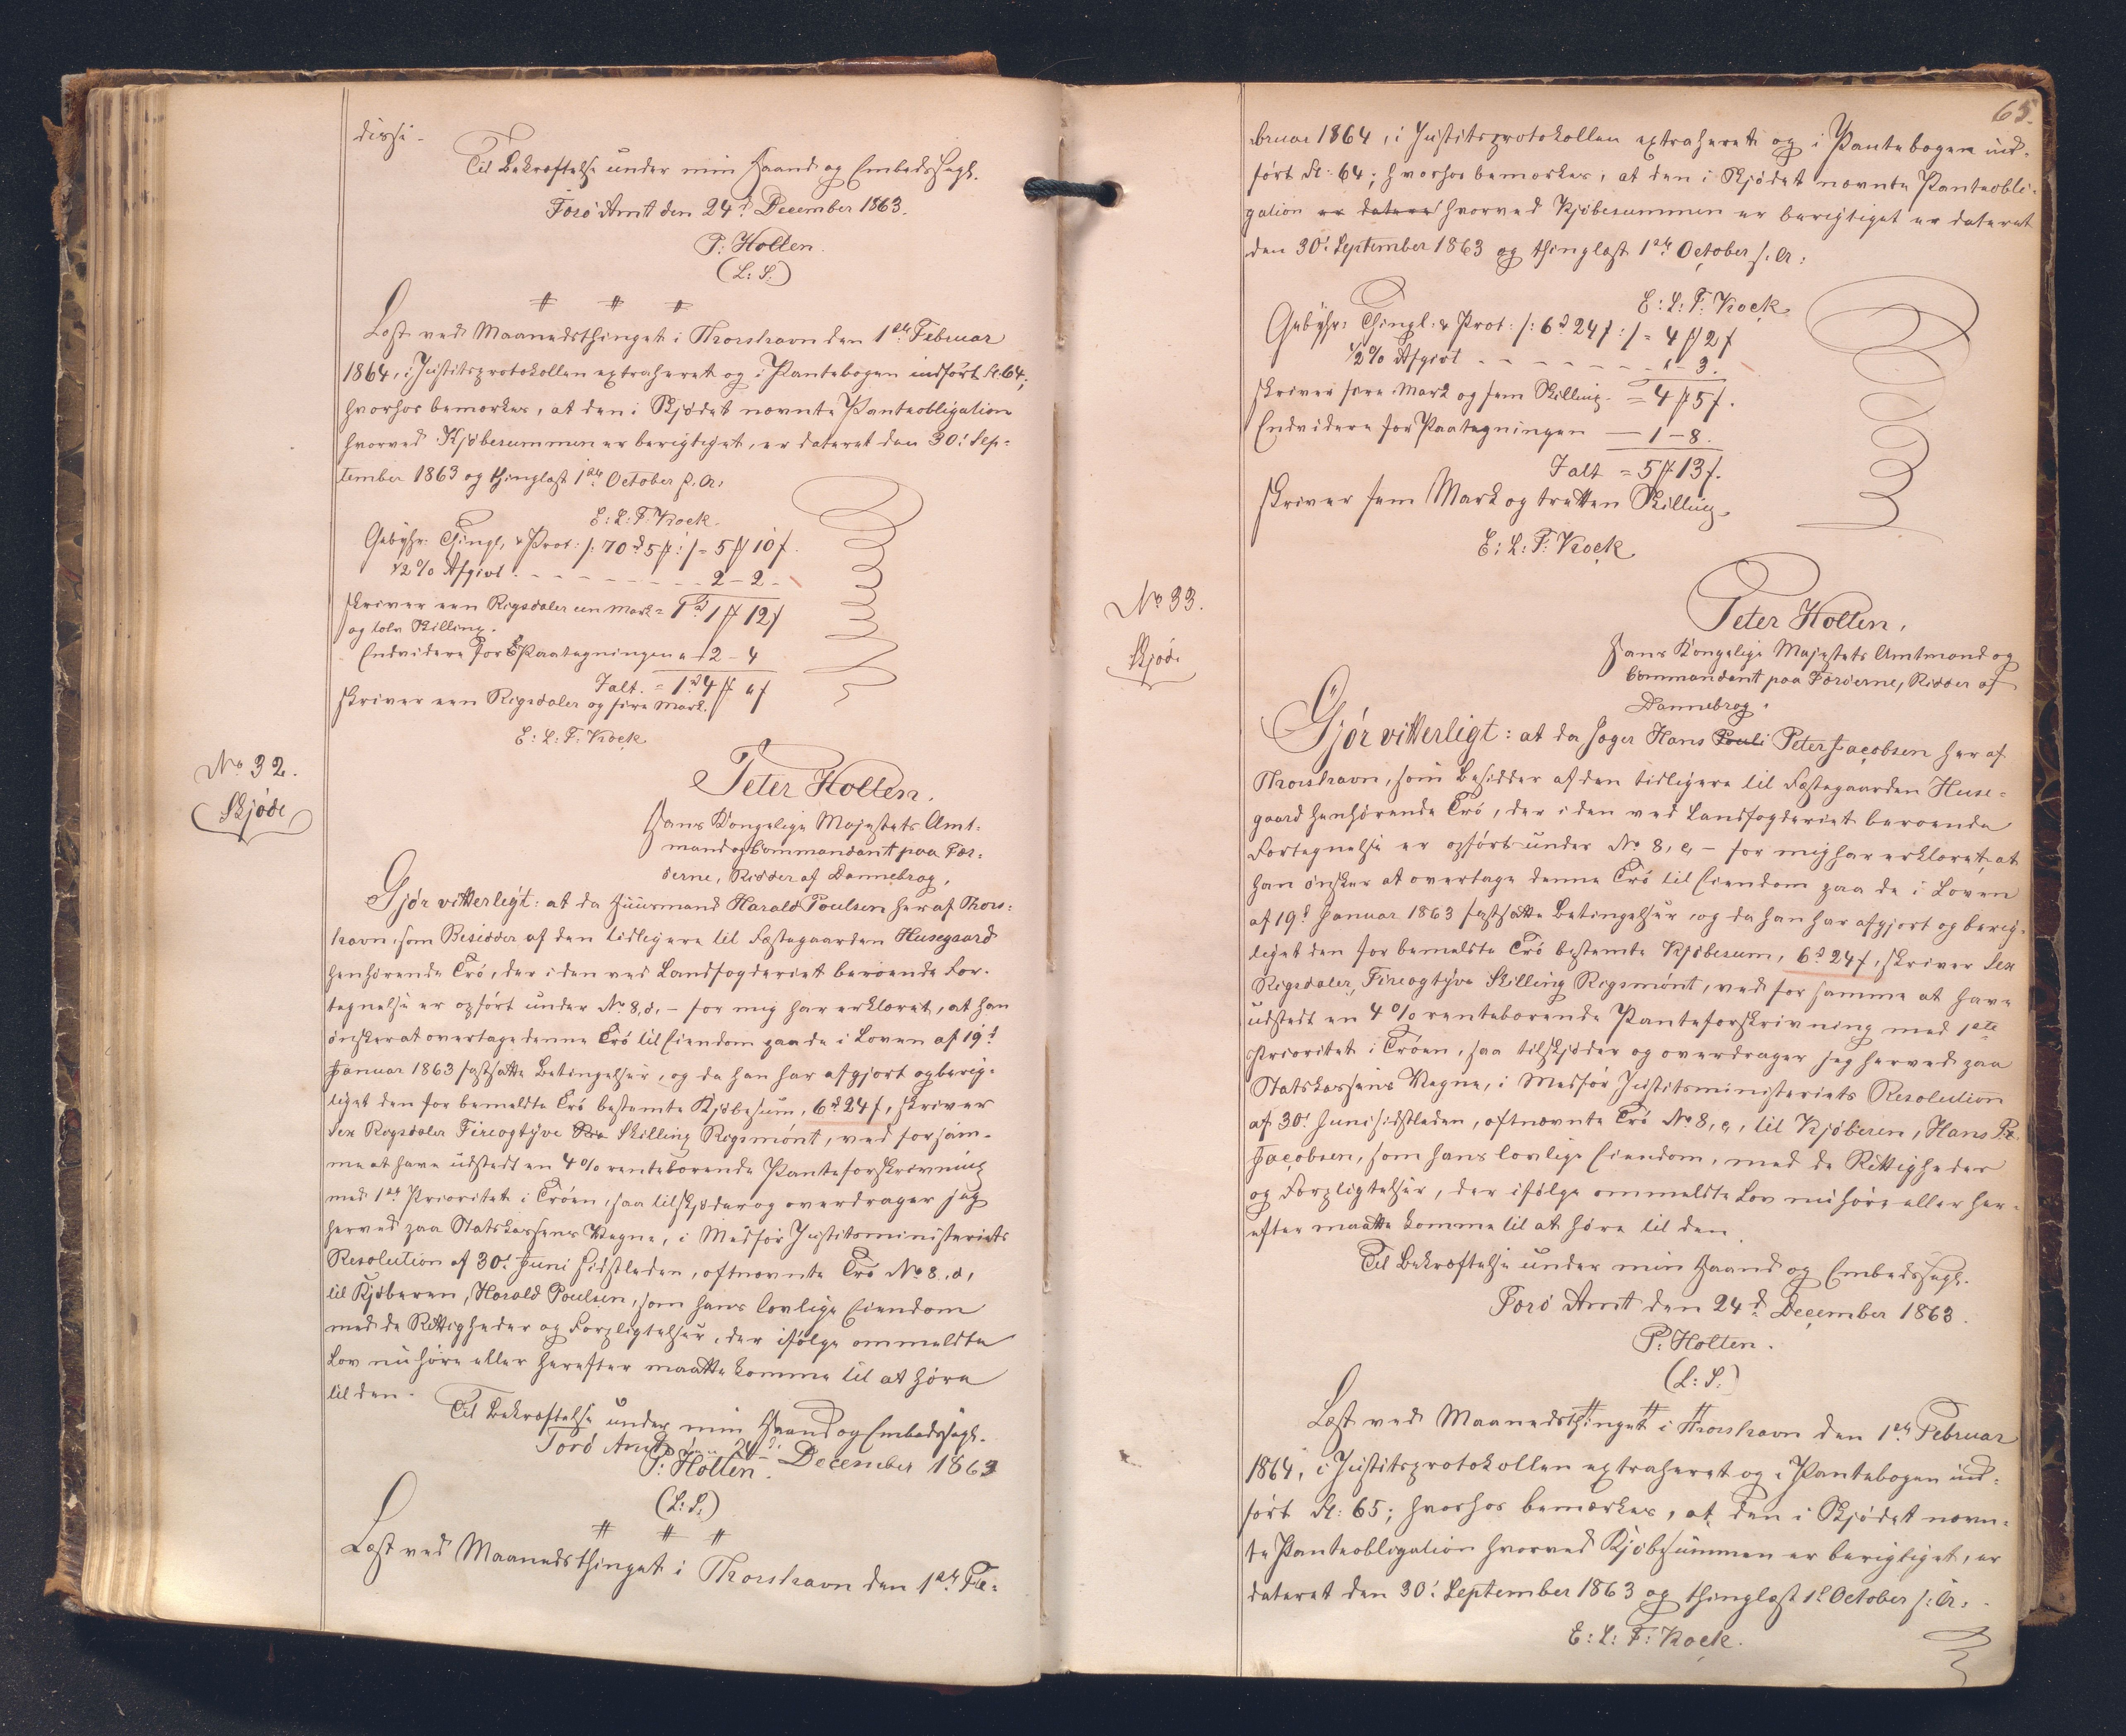 disse.
Til Bekræftelse under min Haand og Embedssegl.
Færö Amt den 24d. December 1863.
P: Holten.
(L: S.)
Læst ved Maanedsthinget i Thorshavn den 1ste Februar
1864, i Justitsprotokollen extraheret og i Pantebogen indfört Fl. 64;
hvorhos bemærkes, at den i Skjödet nævnte Panteobligation
hvorved Kjöbesummen er berigtiget, er dateret den 30: Sep-
tember 1863 og thinglæst 1ste October s. A:
E: L: F: Kock.
Gebyhr: Thingl, & Prot: /: 70d 5 ß :/ = 5 ß 10 f.
1/2 % Afgivt - - - - - - - - 2 - 2 -
skriver een Rigsdaler een Mark = 1d 1 ß 12 f
og tolv Skilling.
Endvidere for Paategningen " - 2 - 4
Ialt. = 1d 4 ß " f
skriver een Rigsdaler og fire Mark.
E: L: F: Kock
No 32.
Skjöde
Peter Holten.
Hans Kongelige Majestets Amt-
mand og Commandant paa Fær-
öerne, Ridder af Dannebrog,
Gjör vitterligt: at da Huusmand Harald Poulsen her af Thors-
havn, som Besidder af den tidligere til Fæstegaarden Husegaard
henhörende Trö, der i den ved Landfogderiet beroende For-
tegnelse er opfört under No 8, d. - for mig har erklæret, at han
önsker at overtage denne Trö til Eiendom paa de i Loven af 19d.
Januar 1863 fastsatte Betingelser, og da han har afgjort og berig-
tiget den for bemeldte Trö bestemte Kjöbesum, 6d 24 f, skriver
Sex Rigsdaler Fireogtyve Skilling Rigsmönt, ved for sam-
me at have udstedt en 4 % rentebærende Panteforskrivning
med 1ste Prioritet i Tröen, saa tilskjöder og overdrager jeg
herved paa Statskassens Vegne, i Medför Justitsministeriets
Resolution af 30: Juni sidstleden, oftnævnte Trö No 8, d,
til Kjöberen, Harald Poulsen, som hans lovlige Eiendom
med de Rettigheder og Forpligtelser, der ifölge ommeldte
Lov nu höre eller herefter maatte komme til at höre
til den.
Til Bekræftelse under min Haand og Embedssegl.
Færö Amt den 24d. December 1863
P: Holten.
(L: S.)
Læst ved Maanedsthinget i Thorshavn den 1ste Fe-
65.
bruar 1864, i Justitsprotokollen extraheret og i Pantebogen ind-
fört Fl: 64; hvorhos bemærkes, at den i Skjödet nævnte Panteobli-
gation er datere hvorved Kjöbesummen er berigtiget er dateret
den 30: September 1863 og thinglæst 1ste October s: A:
E: L: F: Kock
Gebyhr: Thingl: & Prot: /: 6d 24 f :/ = 4 ß 2 f
1/2 % Afgivt - - - - - - - " - 3.
skriver fire Mark og fem Skilling. = 4 ß 5 f.
Endvidere for Paategningen — 1 - 8.
Ialt = 5 ß 13 f.
skriver fem Mark og tretten Skilling.
E: L: F: Kock
No 33.
Skjöde
Peter Holten,
Hans Kongelige Majestets Amtmand og
Commandant paa Færöerne, Ridder af
Dannebrog.
Gjör vitterligt: at da Jæger Hans Pouli Peter Jacobsen her af
Thorshavn, som Besidder af den tidligere til Fæstegaarden Huse-
gaard henhörende Trö, der i den ved Landfogderiet beroende
Fortegnelse er opfört under No 8, e, - for mig har erklæret, at
han önsker at overtage denne Trö til Eiendom paa de i Loven
af 19d Januar 1863 fastsatte Betingelser, og da han har afgjort og berig-
tiget den for bemeldte Trö bestemte Kjöbesum, 6d 24 f, skriver Sex
Rigsdaler, Fireogtyve Skilling Rigsmönt, ved for samme at have
udstedt en 4 % rentebærende Panteforskrivning med 1ste
Prioritet i Tröen, saa tilskjöder og overdrager jeg herved paa
Statskassens Vegne, i Medför Justitsministeriets Resolution
af 30: Juni sidstleden, oftnævnte Trö No 8, e, til Kjöberen, Hans P.
Jacobsen, som hans lovlige Eiendom, med de Rettigheder
og Forpligtelser, der ifölge ommeldte Lov nu höre eller her-
efter maatte komme til at höre til den.
Til Bekræftelse under min Haand og Embedssegl.
Færö Amt den 24d. December 1863.
P: Holten.
(L: S.)
Læst ved Maanedsthinget i Thorshavn den 1ste Februar
1864, i Justitsprotokollen extraheret og i Pantebogen ind-
fört Fl: 65; hvorhos bemærkes, at den i Skjödet nævn-
te Panteobligation hvorved Kjöbsummen er berigtiget, er
dateret den 30: September 1863 og thinglæst 1st October s: A:
E: L: F: Kock.